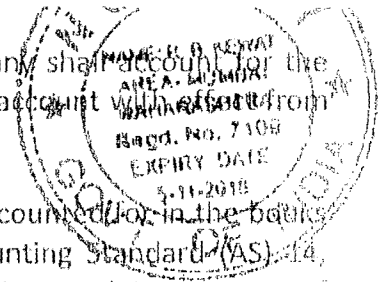 any shall account for the
account with effect from
counted for in the books
unting Standard (AS) 14,
AREA. MUMBAI
MAHARASHTRA
Regd. No. 7109
EXPIRY DATE
5-11-2019
INDIA